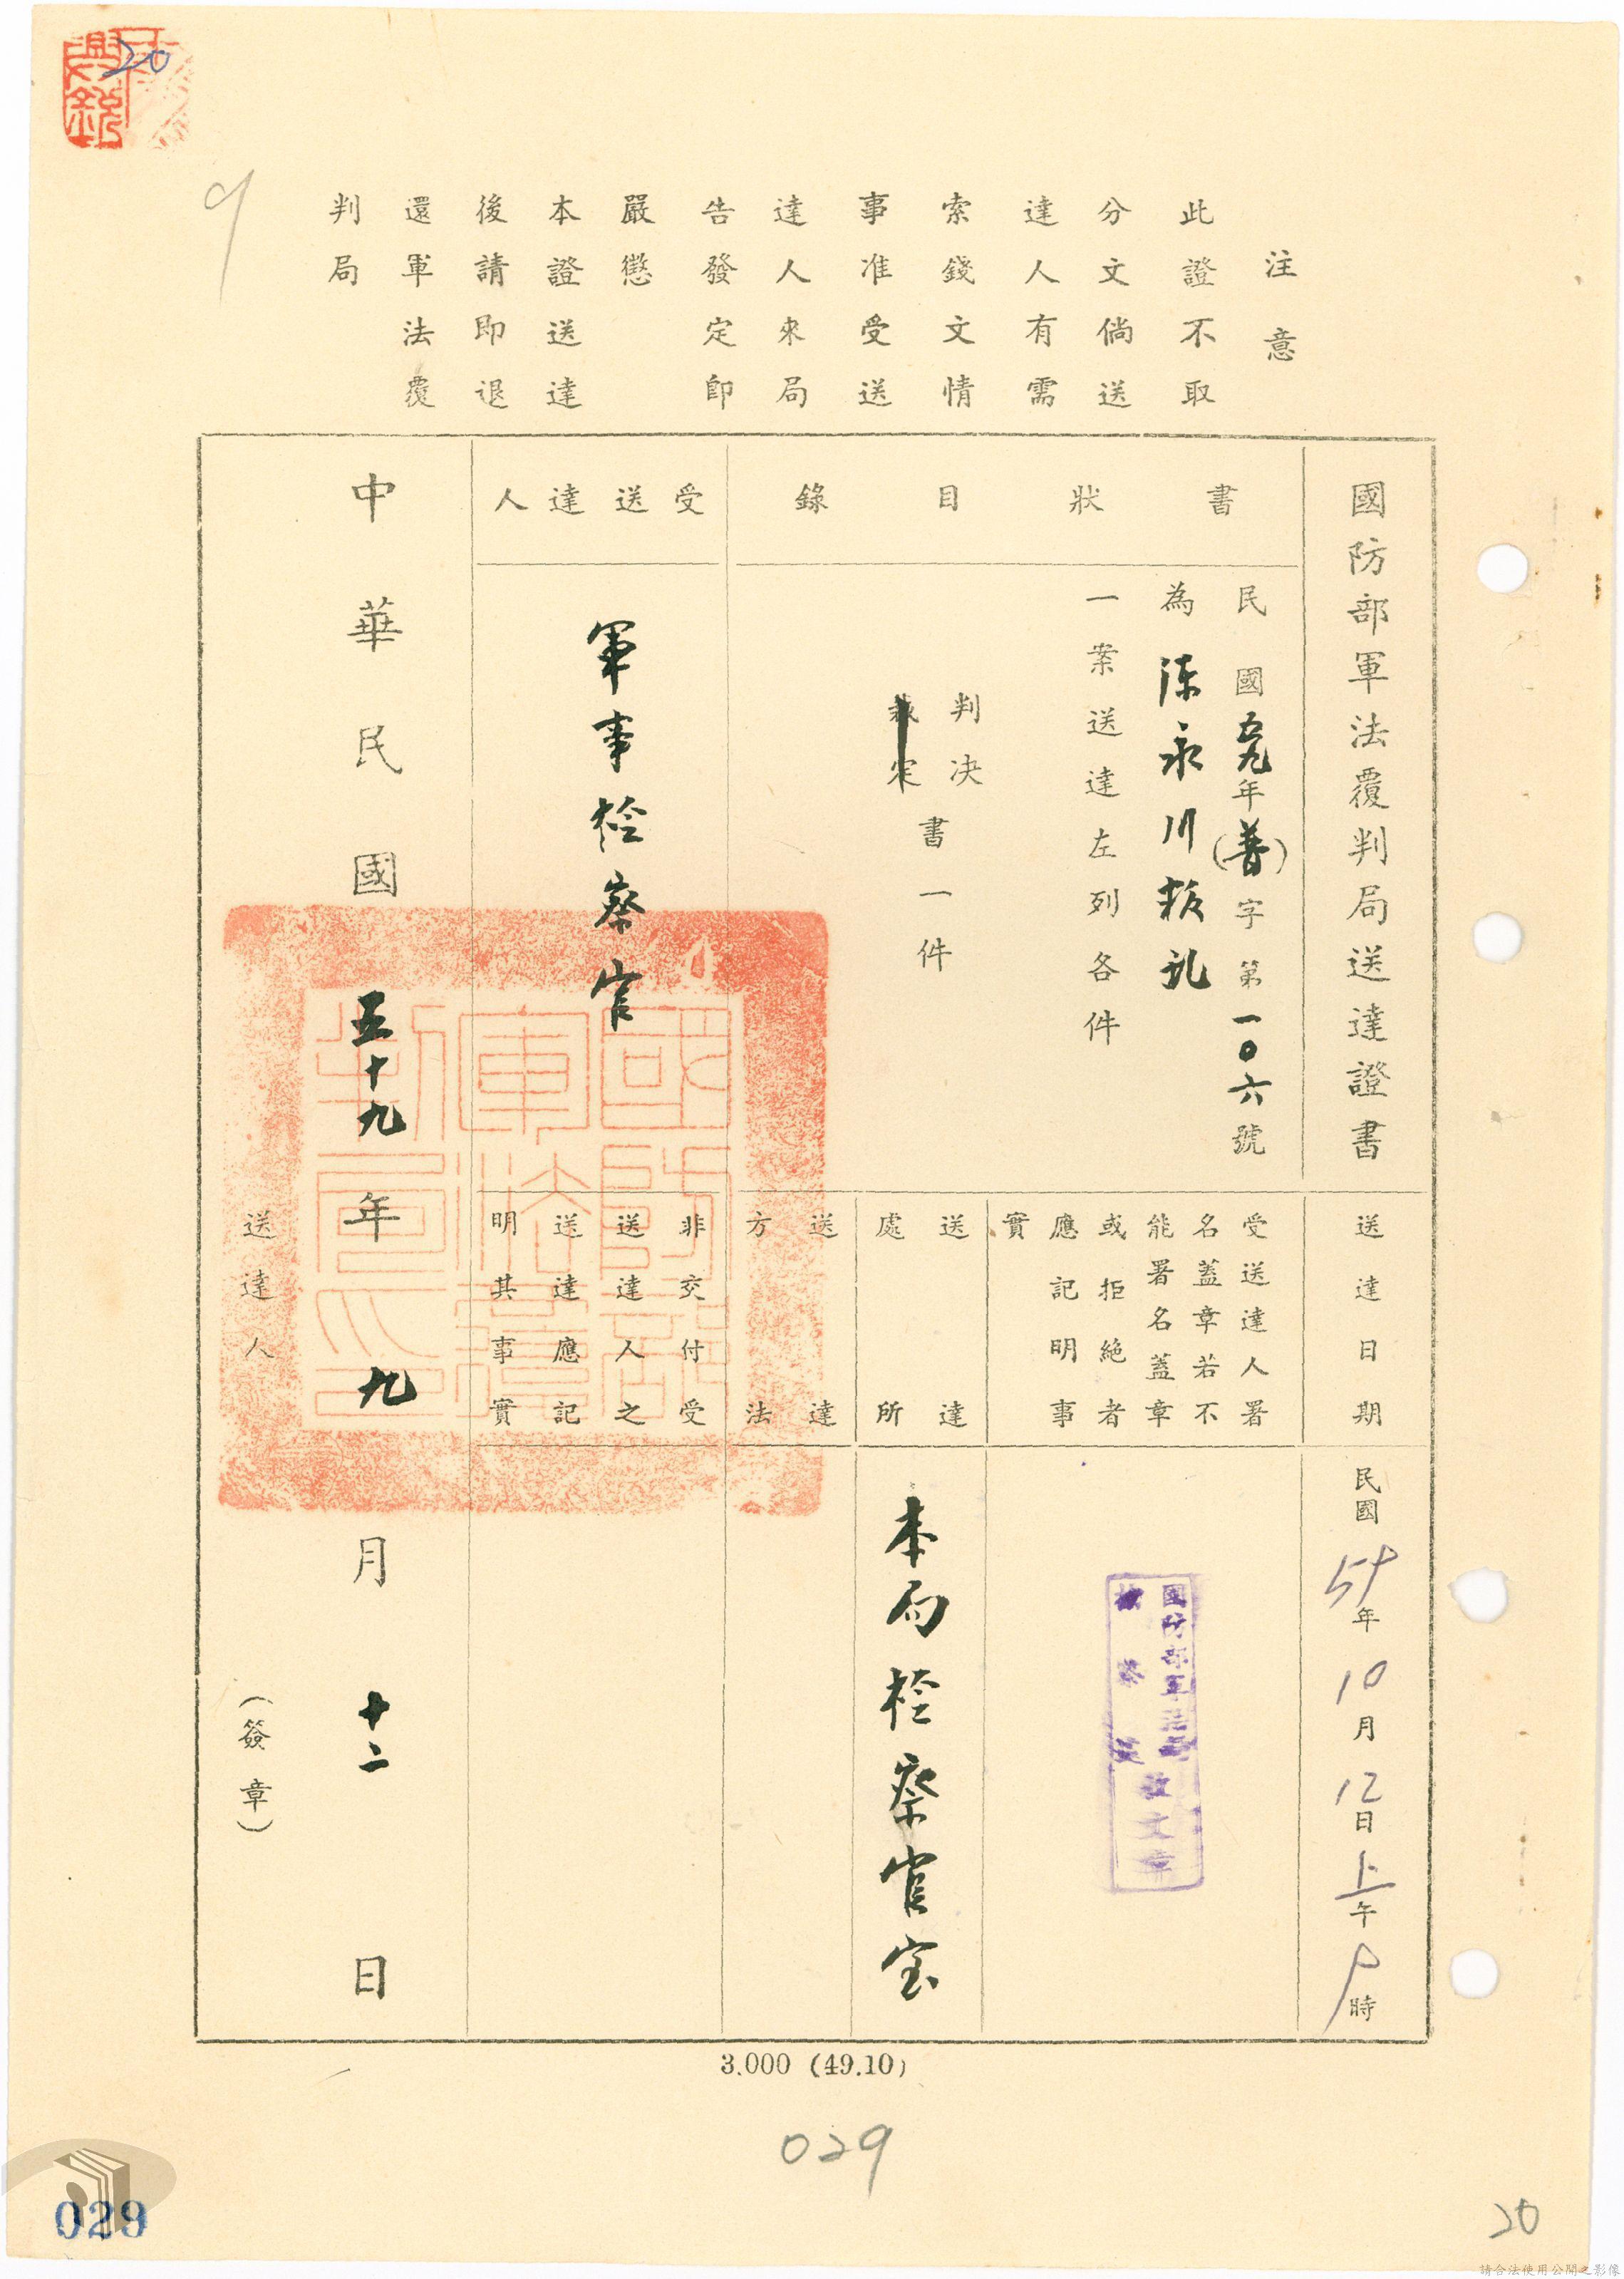 20
9
注意
此證不取
分文倘送
達人有需
索錢文情
事准受送
達人來局
告發定即
嚴懲
本證送達
後請即退
還軍法覆
判局
國防部軍法覆判局送達證書
書狀目錄
民國五九年(普)字第一〇六號
為陳永川叛乱
一案送達左列各件
判決
裁定
書一件
受送達人
軍事检察官
送達日期
民國59年10月12日上午9時
受送達人署
名蓋章若不
能署名蓋章
或拒絕者
應記明事
實
國防部軍法局
檢察官
收文章
送達
處所
本局检察官室
送達
方法
非交付受
送達人之
送達應記
明其事實
中華民國五十九年九月十二日
送達人(簽章)
3.000 (49.10)
029
029
20
請合法使用公開之影像